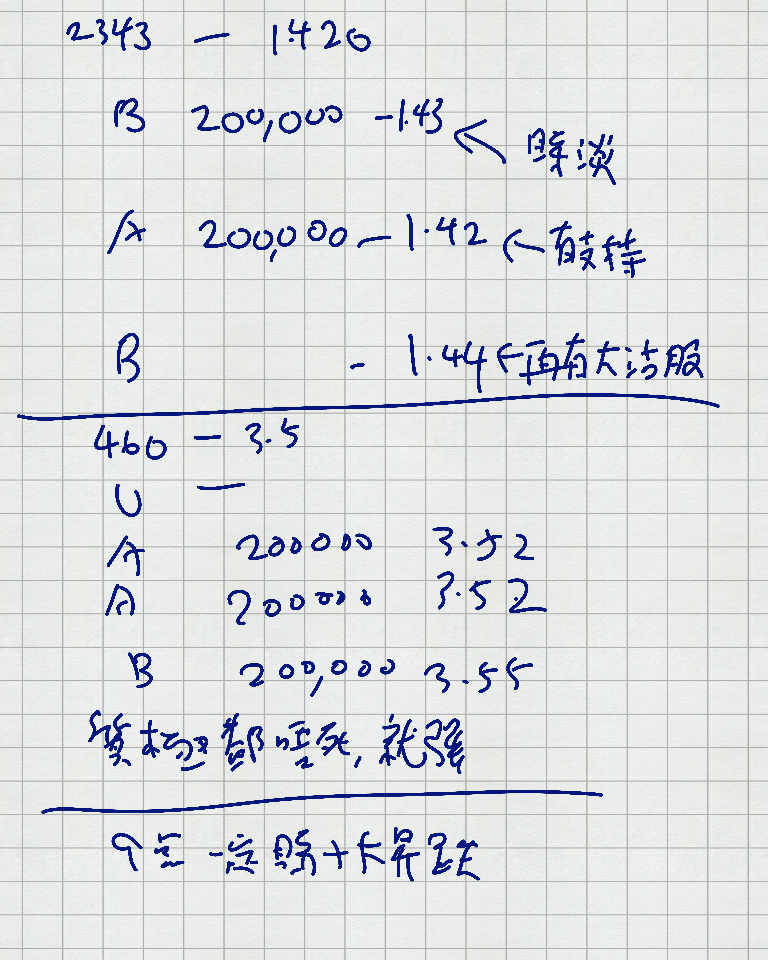 2343 — 1.420
B 200,000 -1.43 ← 睬淡
A 200,000 — 1.42 ← 有支持
B - 1.44 ← 再有大沽服
460 — 3.5
U —
A 200000 3.52
A 200000 3.52
B 200,000 3.55
都唔死, 就強
9